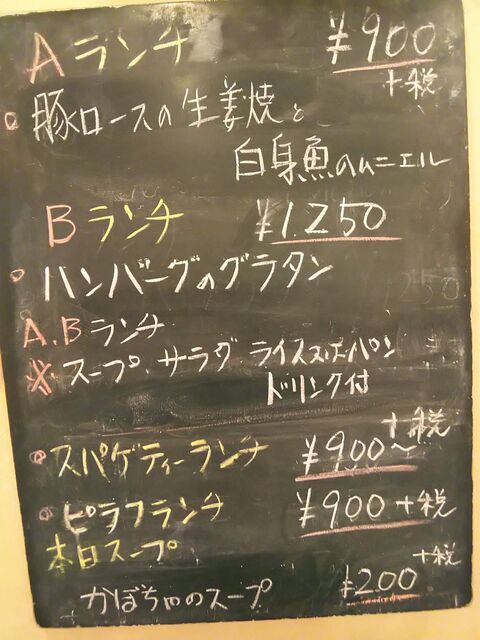 Aランチ ¥900
+税
豚ロースの生姜焼と
白身魚のムニエル
Bランチ ¥1.250
ハンバーグのグラタン
A.Bランチ
※スープ.サラダ ライス又はパン
ドリンク付
+税
スパゲティーランチ ¥900~
ピラフランチ ¥900+税
本日スープ
+税
かぼちゃのスープ ¥200